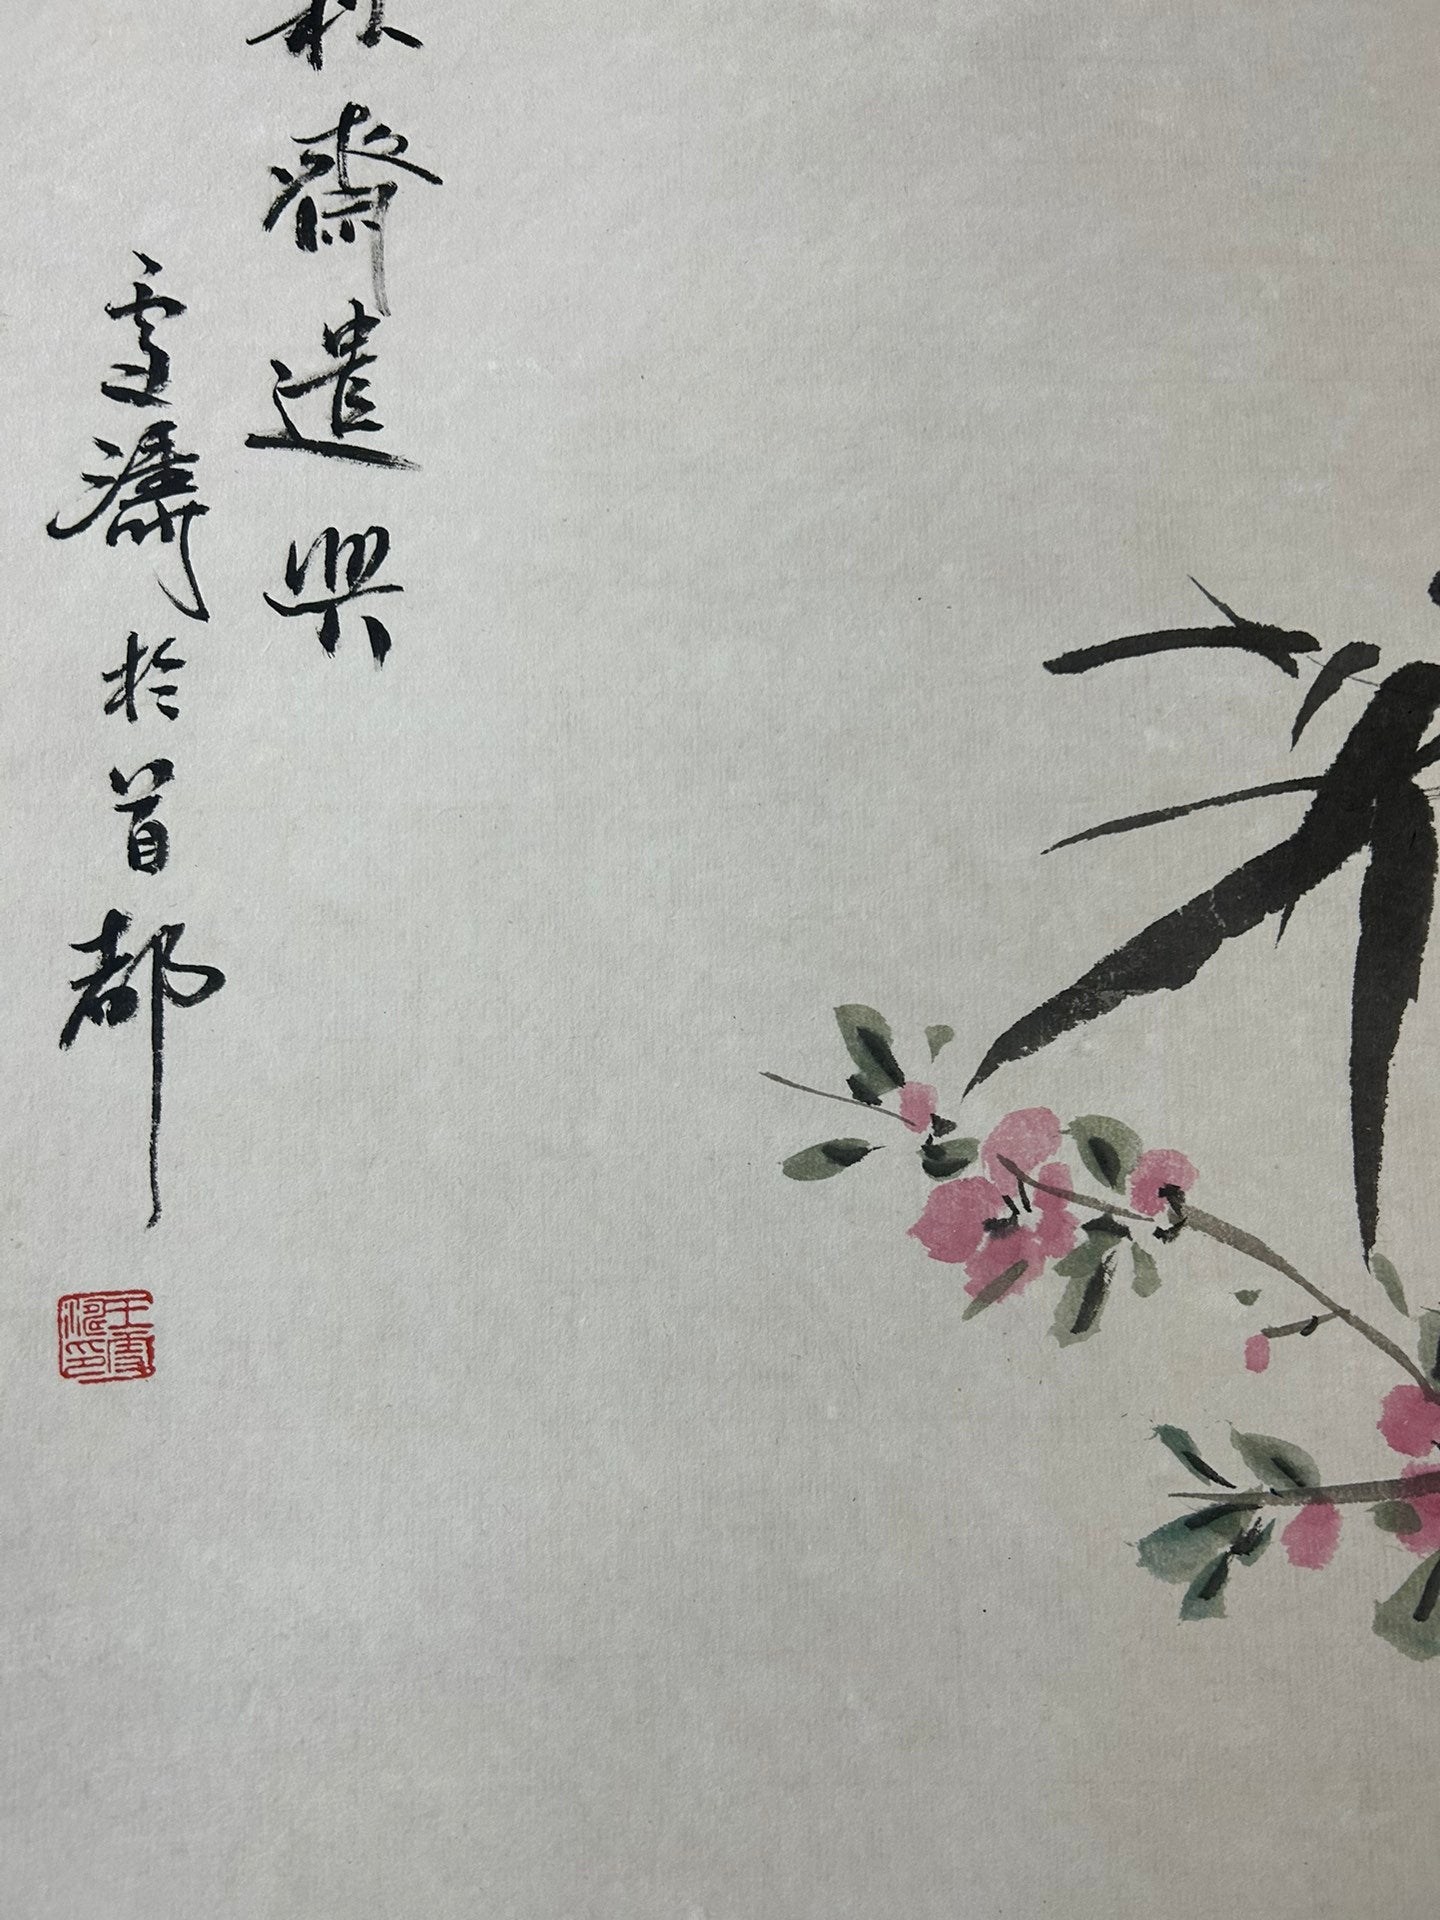 秋齋遣興
雪濤於首都
王雪濤印